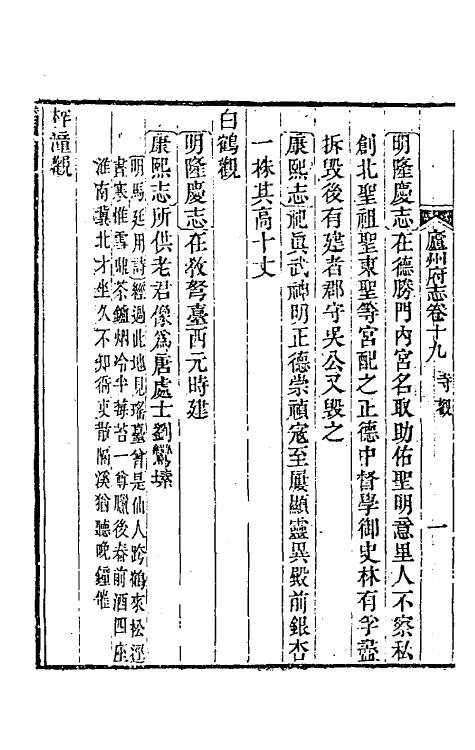 廬州府志卷十九 寺觀 一
明隆慶志在德勝門內宮名取助佑聖明意里人不察私
創北聖祖聖東聖等宮配之正德中督學御史林有孚盡
拆毀後有建者郡守吳公又毀之
康熙志祀眞武神明正德崇禎寇至屢顯靈異殿前銀杏
一株其高十丈
白鶴觀
明隆慶志在敎弩臺西元時建
康熙志所供老君像爲唐處士劉鸞塐
明馬廷用詩經過此地見瑤臺曾是仙人跨鶴來松逕
書寒惟雪 茶鑪烟冷半莓苔一尊臘後春前酒四座
淮南冀北才坐久不知衙吏散隔溪猶聽晚鐘催
梓潼觀